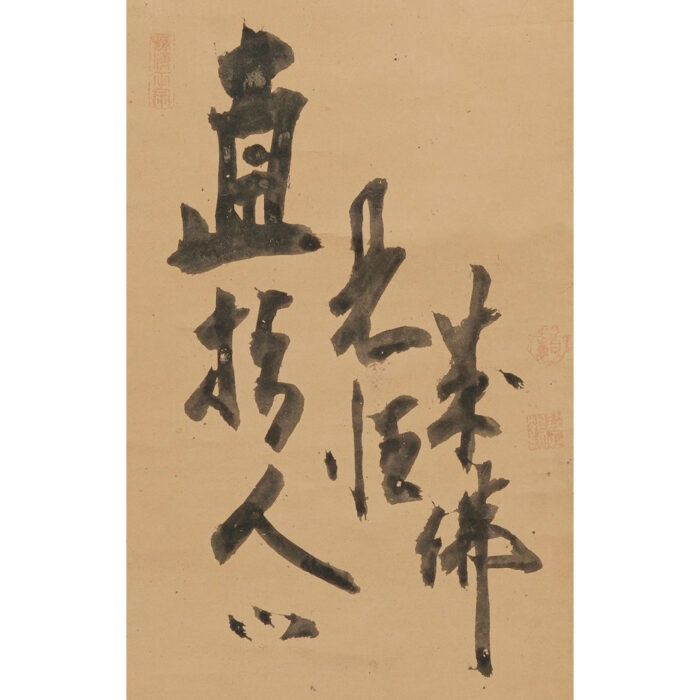 直指人心
見性
成佛